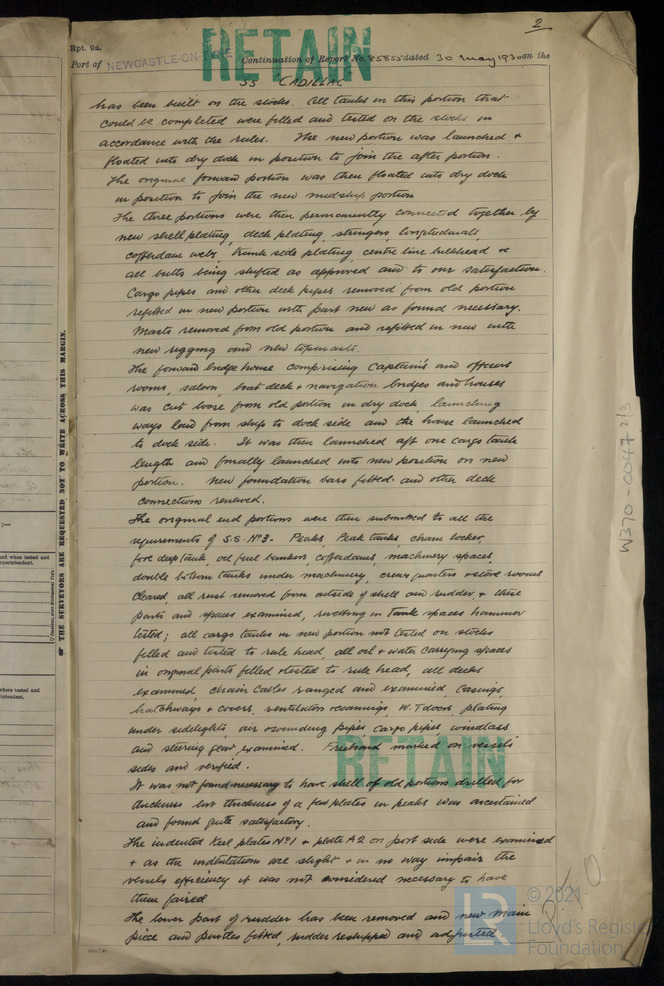 2
Rpt. 9a.
RETAIN
Port of NEWCASTLE-ON-TYNE Continuation of Report No. 85855 dated 30 May 1930 on the
SS "CADILLAC"
has been built on the stocks. All tanks in this portion that
could be completed were filled and tested on the stocks in
accordance with the rules. The new portion was launched +
floated into dry dock in position to join the after portion.
The original forward portion was then floated into dry dock
in position to join the new midship portion
The three portions were then permanently connected together by
new shell plating, deck plating, stringers, longitudinals,
cofferdam webs, trunk side plating, centre line bulkhead +
all butts being shifted as approved and to our satisfaction.
Cargo pipes and other deck pipes removed from old portion
refitted in new portion with part new as found necessary.
Masts removed from old portion and refitted in new with
new rigging and new topmasts.
The forward bridge house comprising Captain's and officers
rooms, saloon, boat deck + navigation bridges and houses
was cut loose from old portion in dry dock, launching
ways laid from ship to dock side and the house launched
to dock side. It was then launched aft one cargo tank
length and finally launched into new position on new
portion. New foundation bars fitted and other deck
connections renewed.
The original end portions were then submitted to all the
requirements of S.S. No 3. Peaks Peak tanks, chain locker,
fore deep tank, oil fuel bunkers, cofferdams, machinery spaces,
double bottom tanks under machinery, crews quarters + store rooms
cleared, all rust removed from outside of shell and rudder, + these
parts and spaces examined, rivetting in tank spaces hammer
tested; all cargo tanks in new portion not tested on stocks
filled and tested to rule head, all oil + water carrying spaces
in original parts filled + tested to rule head, all decks
examined, chain cables ranged and examined, Casings,
hatchways + covers, ventilators + coamings, W.T doors, plating
under sidelights, air + sounding pipes, cargo pipes, windlass
and steering gear examined. Freeboard marked on vessels
sides and verified.
RETAIN
It was not found necessary to have shell of old portions drilled for
thickness but thickness of a few plates in peaks was ascertained
and found quite satisfactory.
The indented Keel plates No 1 + plate A 2 on port side were examined
+ as the indentations are slight + in no way impair the
vessels efficiency it was not considered necessary to have
them faired
The lower part of rudder has been removed and new main
piece and pintles fitted, rudder reshipped and adjusted.
P.T.O
THE SURVEYORS ARE REQUESTED NOT TO WRITE ACROSS THIS MARGIN.
W370-0047 2/3
LR
© 2021
Lloyd's Register
Foundation